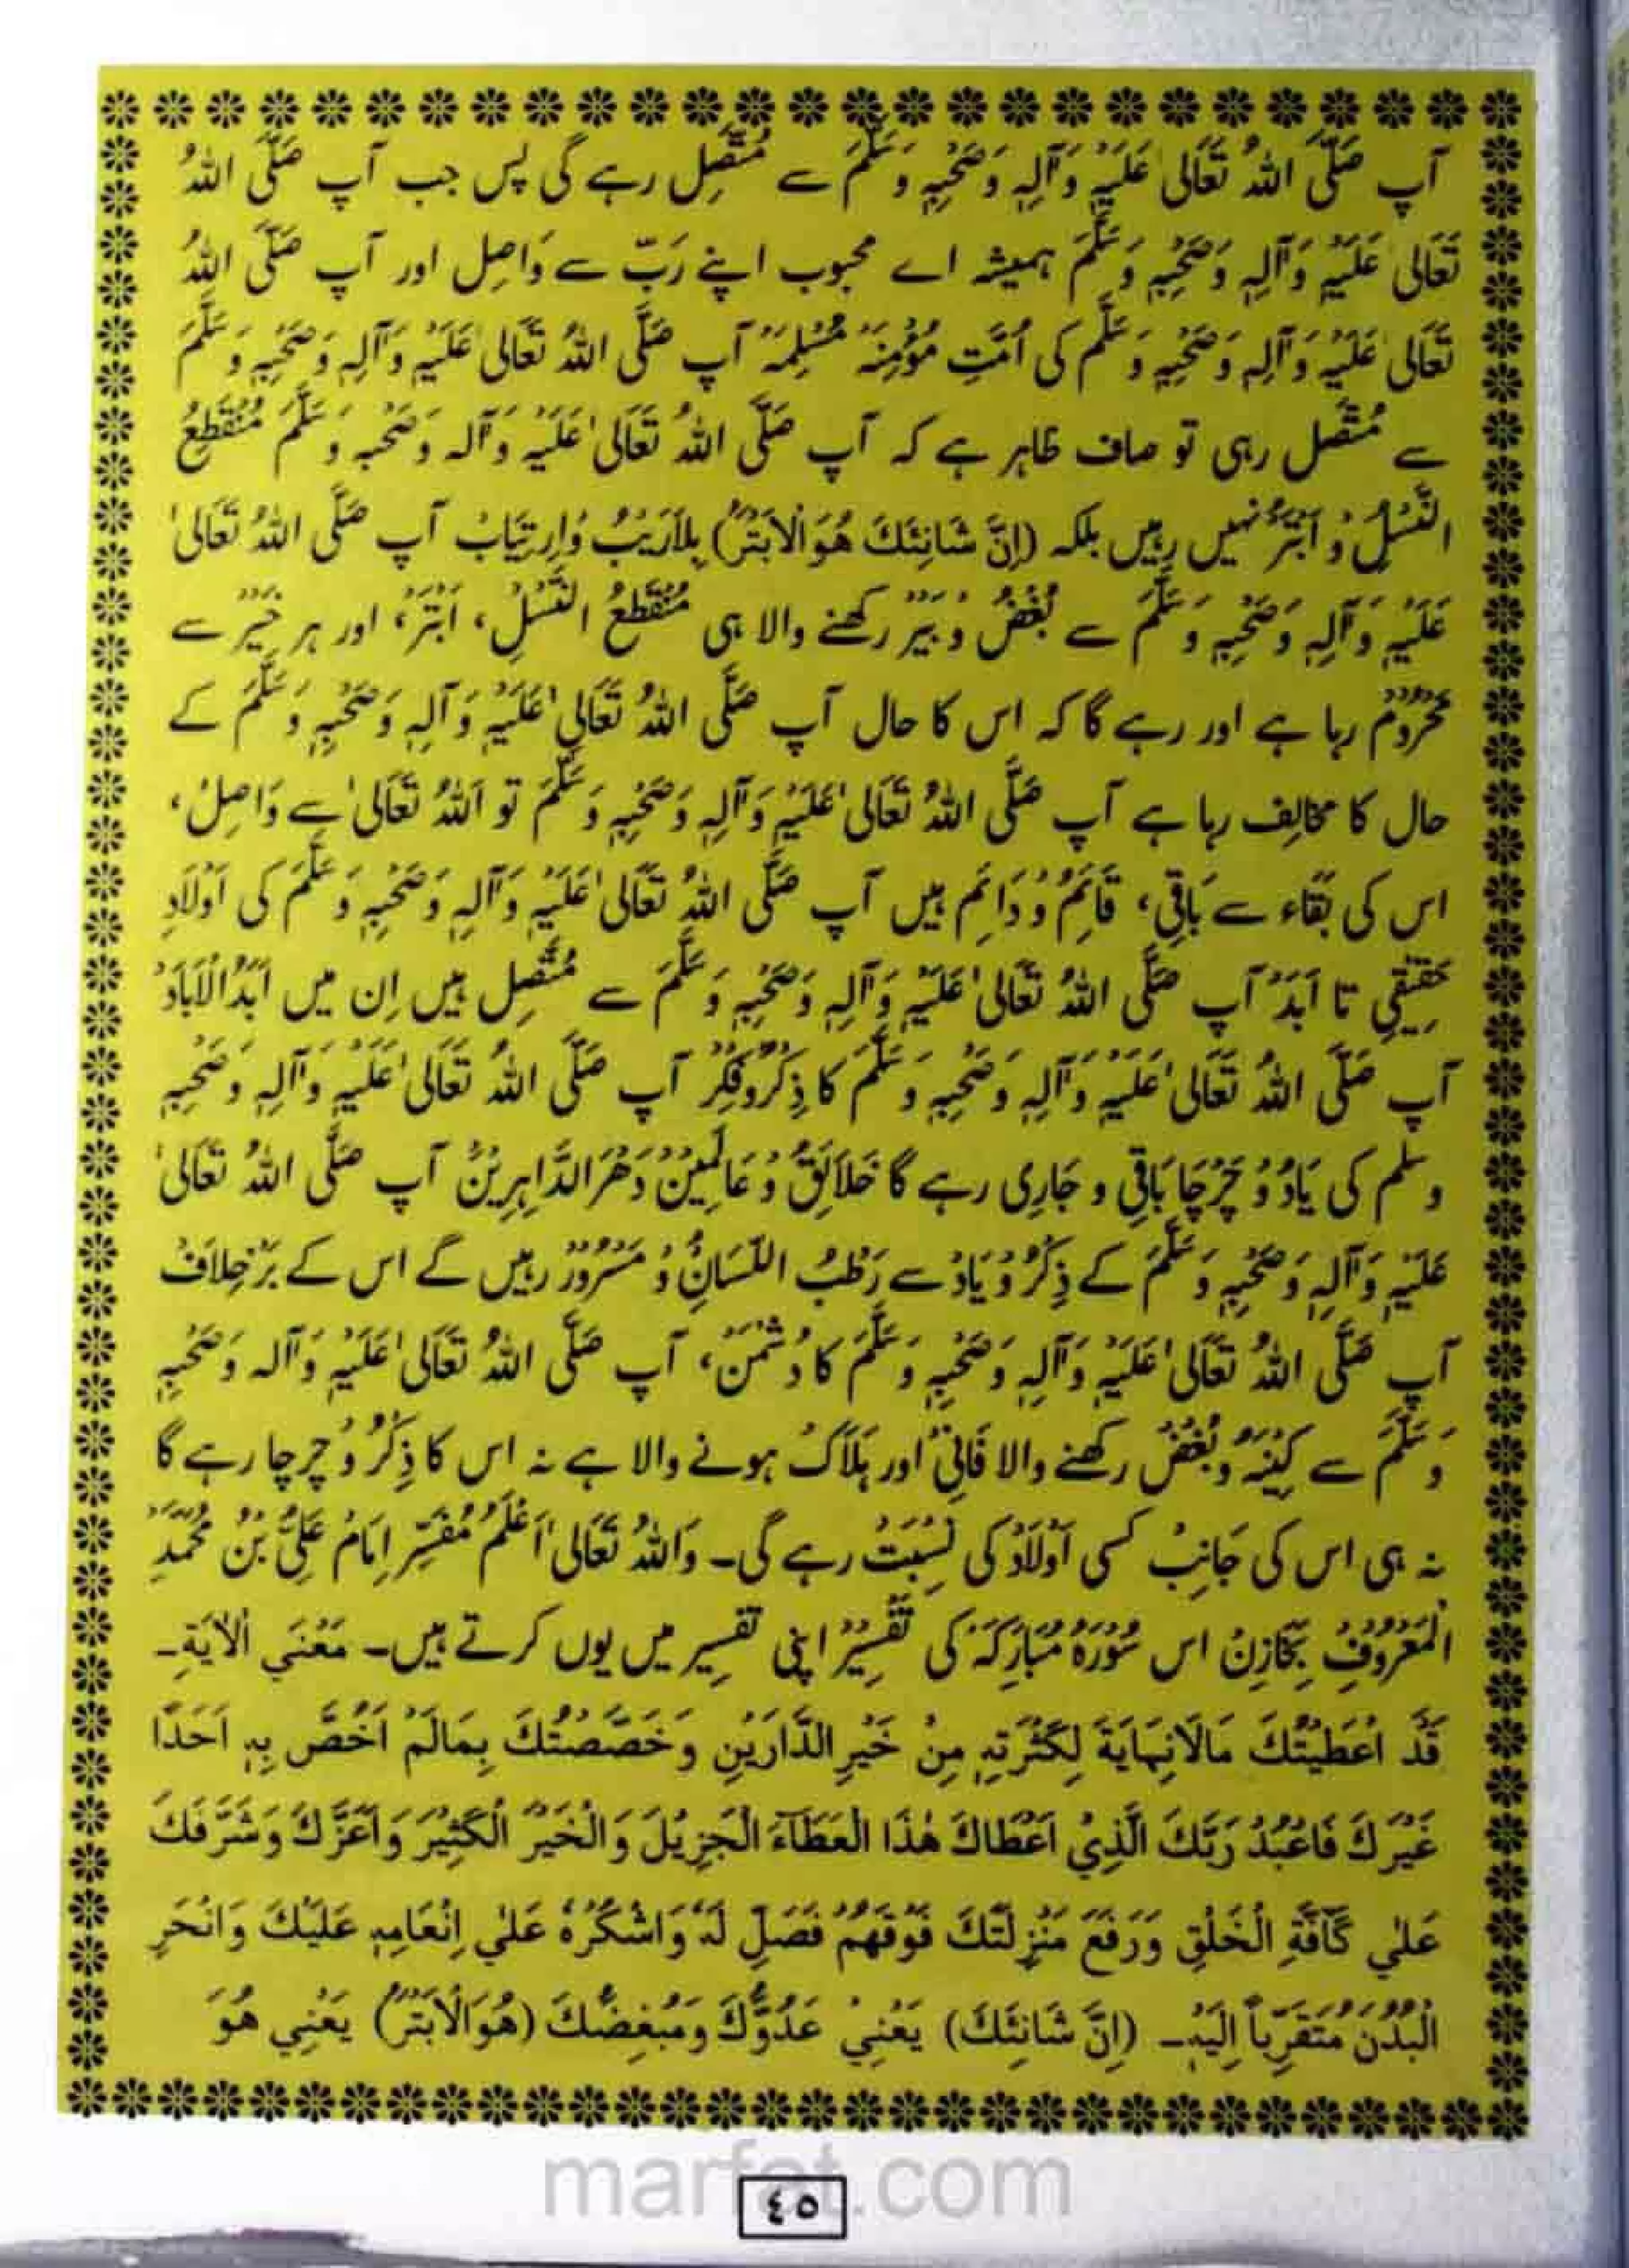 آپ صَلَّی اللہُ تَعَالٰی عَلَیْہِ وَآلِہٖ وَصَحْبِہٖ وَسَلَّمَ سے مُتَّصِل رہے گی پس جب آپ صَلَّی اللہُ
تَعَالٰی عَلَیْہِ وَآلِہٖ وَصَحْبِہٖ وَسَلَّمَ ہمیشہ اے محبوب اپنے رَبّ سے وَاصِل اور آپ صَلَّی اللہُ
تَعَالٰی عَلَیْہِ وَآلِہٖ وَصَحْبِہٖ وَسَلَّمَ کی اُمَّتِ مُؤْمِنَہ مُسْلِمَہ آپ صَلَّی اللہُ تَعَالٰی عَلَیْہِ وَآلِہٖ وَصَحْبِہٖ وَسَلَّمَ
سے مُتَّصِل رہی تو صاف ظاہر ہے کہ آپ صَلَّی اللہُ تَعَالٰی عَلَیْہِ وَآلہ وَصَحْبہ وَسَلَّمَ مُنْقَطِعُ
النَّسْلِ وَ اَبْتَرْ نہیں رہیں بلکہ (اِنَّ شَانِئَكَ هُوَ الْاَبْتَرُ) بِلَارَیْبْ وَاِرتِیَابْ آپ صَلَّی اللہُ تَعَالٰی
عَلَیْہِ وَآلِہٖ وَصَحْبِہٖ وَسَلَّمَ سے بُغْضْ وَ بَیْر رکھنے والا ہی مُنْقَطِعُ النَّسْلِ، اَبْتَرْ، اور ہر خَیْرْ سے
مَحْرُوْم رہا ہے اور رہے گا کہ اس کا حال آپ صَلَّی اللہُ تَعَالٰی عَلَیْہِ وَآلِہٖ وَصَحْبِہٖ وَسَلَّمَ کے
حال کا مخالِف رہا ہے آپ صَلَّی اللہُ تَعَالٰی عَلَیْہِ وَآلِہٖ وَصَحْبِہٖ وَسَلَّمَ تو اَللہُ تَعَالٰی سے وَاصِلْ،
اس کی بَقَاء سے بَاقِی، قَائِمْ وَ دَائِم ہیں آپ صَلَّی اللہُ تَعَالٰی عَلَیْہِ وَآلِہٖ وَصَحْبِہٖ وَسَلَّمَ کی اَوْلَادِ
حَقِیْقِی تا اَبَدْ آپ صَلَّی اللہُ تَعَالٰی عَلَیْہِ وَآلِہٖ وَصَحْبِہٖ وَسَلَّمَ سے مُتَّصِل ہیں اِن میں اَبَدُالْاٰبَادْ
آپ صَلَّی اللہُ تَعَالٰی عَلَیْہِ وَآلِہٖ وَصَحْبِہٖ وَسَلَّمَ کا ذِکْرُوفِکْرْ آپ صَلَّی اللہُ تَعَالٰی عَلَیْہِ وَآلِہٖ وَصَحْبِہٖ
وسلم کی یَادْ وُ چَرْچَا بَاقِی و جَارِی رہے گا خَلَائِقْ وَ عَالَمِیْن دَہْرَ الدَّاہِرِیْنْ آپ صَلَّی اللہُ تَعَالٰی
عَلَیْہِ وَآلِہٖ وَصَحْبِہٖ وَسَلَّمَ کے ذِکْرُ وْ یَادْ سے رَطْبُ اللِّسَانْ وَ مَسْرُوْر رہیں گے اس کے بَرْخِلَافْ
آپ صَلَّی اللہُ تَعَالٰی عَلَیْہِ وَآلِہٖ وَصَحْبِہٖ وَسَلَّمَ کا دُشْمَنْ، آپ صَلَّی اللہُ تَعَالٰی عَلَیْہِ وَآلہ وَصَحْبِہٖ
وَسَلَّمَ سے کِیْنَہ وبُغْضْ رکھنے والا فَانِیْ اور ہَلَاکْ ہونے والا ہے نہ اس کا ذِکْرُ وْ چرچا رہے گا
نہ ہی اس کی جَانِبْ کسی اَوْلَادْ کی نِسْبَتْ رہے گی۔ وَاللہُ تَعَالٰی اَعْلَمُ مُفَسِّر اِمَامْ عَلِیُّ بْنُ مُحَمَّدِ
الْمَعْرُوْفِ بِخَازِنْ اس سُوْرَۂ مُبَارَکَہ کی تَفْسِیْر اپنی تفسِیر میں یوں کرتے ہیں۔ مَعْنَي الْاٰيَةِ۔
قَدْ اَعْطَيْتُكَ مَالَانِهَايَةَ لِكَثْرَتِهٖ مِنْ خَيْرِ الدَّارَيْنِ وَخَصَّصْتُكَ بِمَالَمْ اَخُصَّ بِهٖ اَحَدًا
غَيْرَكَ فَاعْبُدْ رَبَّكَ الَّذِيْ اَعْطَاكَ هٰذَا الْعَطَآءَ الْجَزِيْلَ وَالْخَيْرَ الْكَثِيْرَ وَاَعَزَّكَ وَشَرَّفَكَ
عَلٰي كَآفَّةِ الْخَلْقِ وَرَفَعَ مَنْزِلَتَكَ فَوْقَهُمْ فَصَلِّ لَهٗ وَاشْكُرْهُ عَلٰي اِنْعَامِهٖ عَلَيْكَ وَانْحَرِ
الْبُدْنَ مُتَقَرِّباً اِلَيْهِ۔ (اِنَّ شَانِئَكَ) يَعْنِيْ عَدُوَّكَ وَمُبْغِضَكَ (هُوَالْاَبْتَرُ) يَعْنِي هُوَ
marfat.com
٤٥